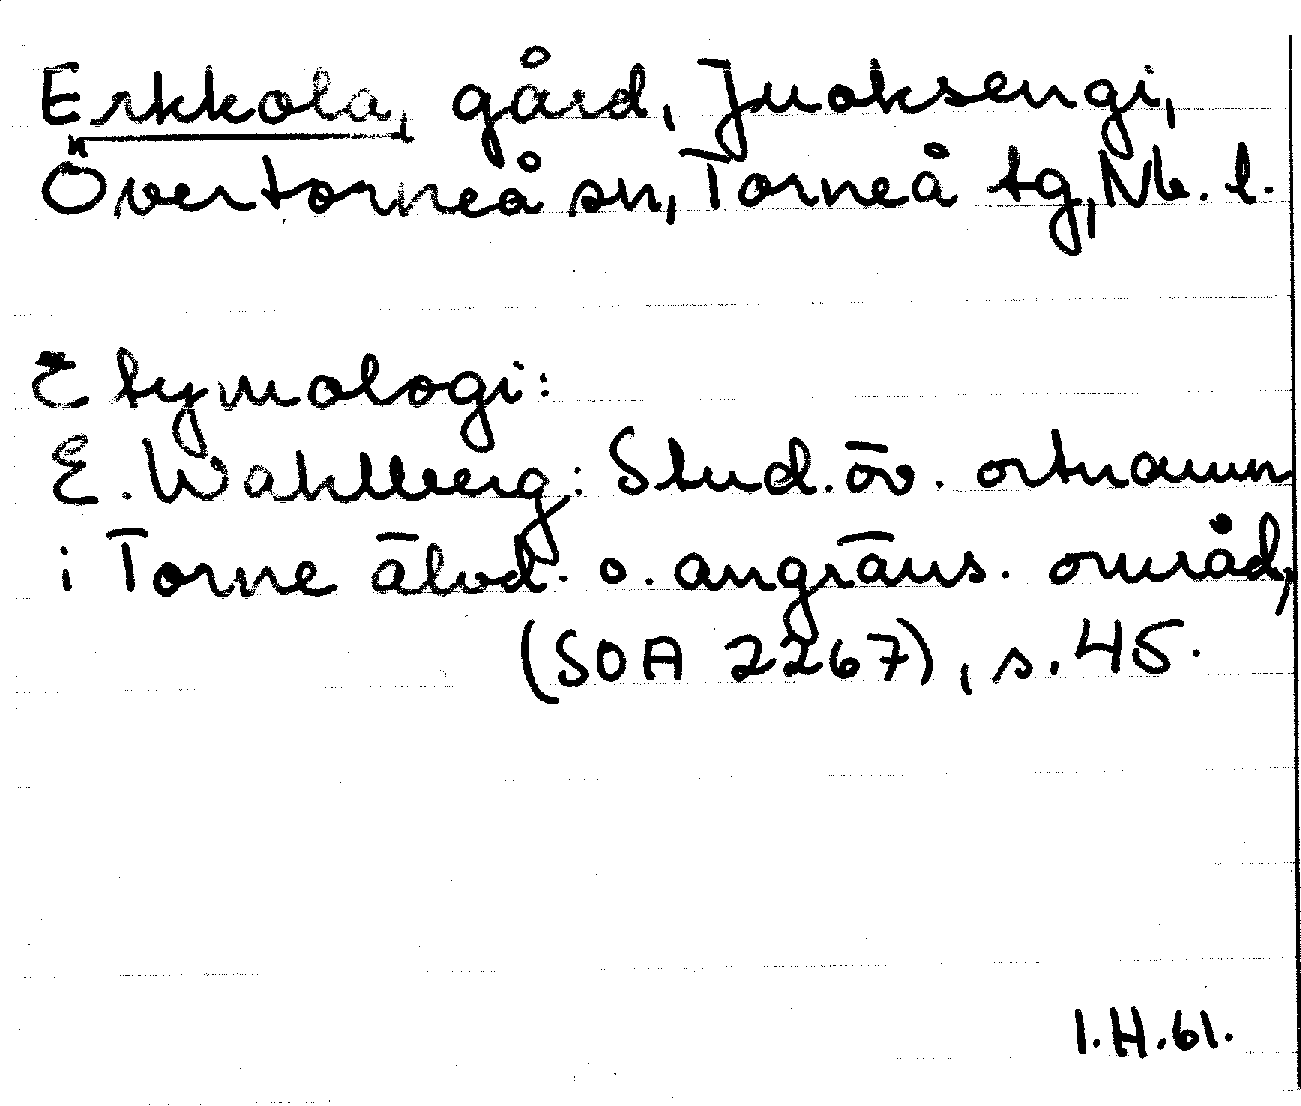 Erkkola, gård, Juoksengi,
Övertorneå sn, Torneå tg, Nb. l.
Etymologi:
E. Wahlberg: Stud. öv. ortnamn
i Torne älvd. o. angräns. områd,
(SOA 2267), s. 45.
I.H.61.